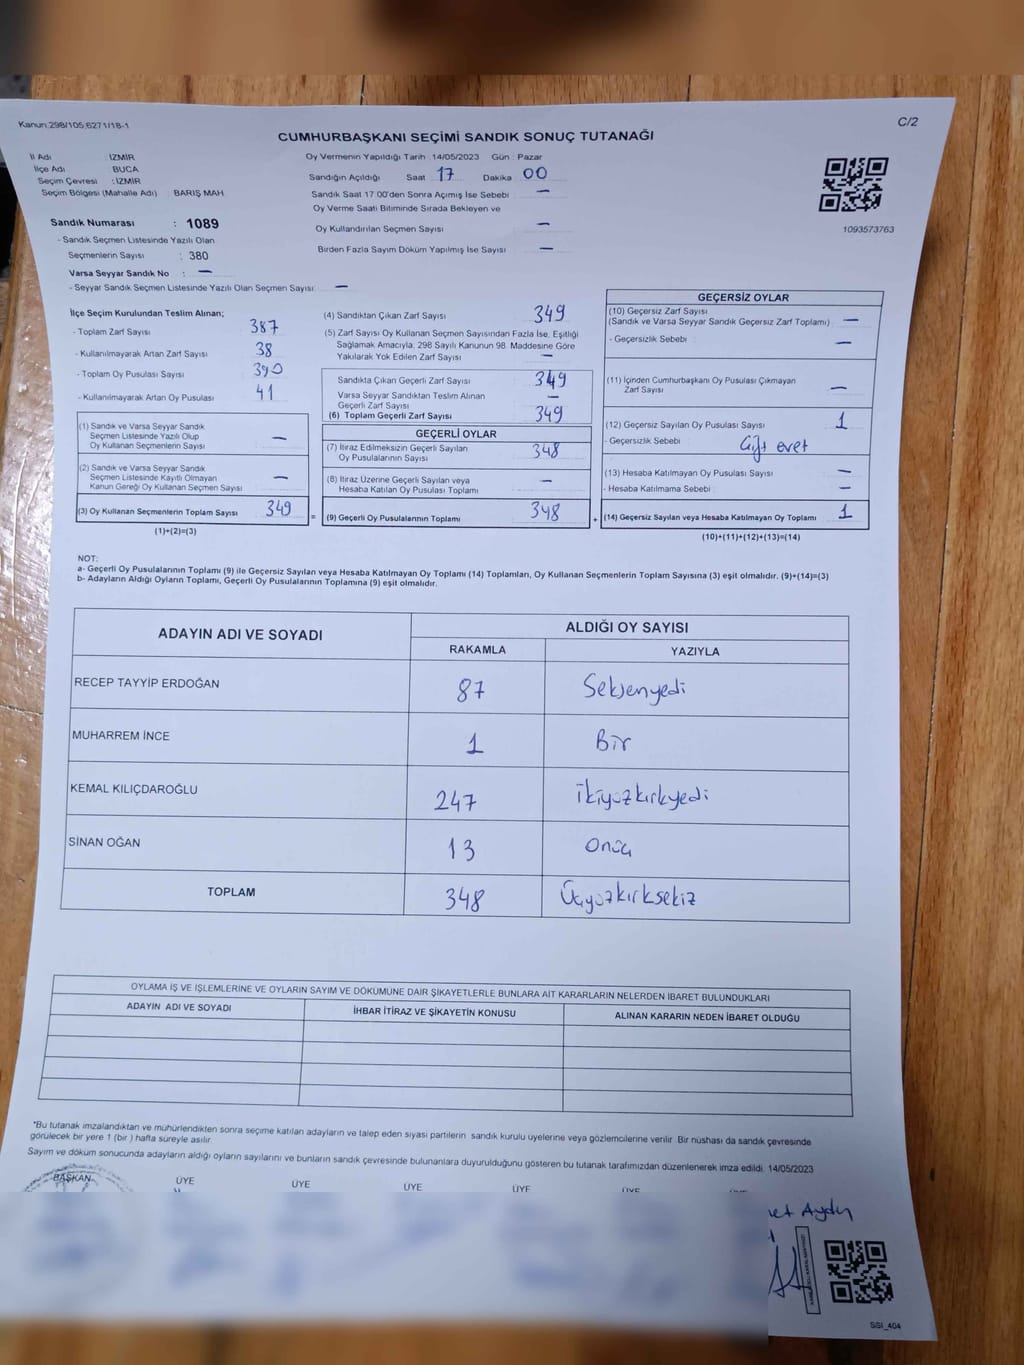 Kanun:298/105;6271/18-1
C/2
CUMHURBAŞKANI SEÇİMİ SANDIK SONUÇ TUTANAĞI
İl Adı : İZMİR
İlçe Adı : BUCA
Seçim Çevresi : İZMİR
Seçim Bölgesi (Mahalle Adı) : BARIŞ MAH.
Oy Vermenin Yapıldığı Tarih :14/05/2023 Gün : Pazar
Sandığın Açıldığı Saat 17 Dakika 00
Sandık Saat 17.00'den Sonra Açımış İse Sebebi : —
Oy Verme Saati Bitiminde Sırada Bekleyen ve
Oy Kullandırılan Seçmen Sayısı —
Birden Fazla Sayım Döküm Yapılmış İse Sayısı —
1093573763
Sandık Numarası : 1089
- Sandık Seçmen Listesinde Yazılı Olan
Seçmenlerin Sayısı : 380
Varsa Seyyar Sandık No : —
- Seyyar Sandık Seçmen Listesinde Yazılı Olan Seçmen Sayısı: —
İlçe Seçim Kurulundan Teslim Alınan;
- Toplam Zarf Sayısı 387
- Kullanılmayarak Artan Zarf Sayısı 38
- Toplam Oy Pusulası Sayısı 390
- Kullanılmayarak Artan Oy Pusulası 41
(1) Sandık ve Varsa Seyyar Sandık
Seçmen Listesinde Yazılı Olup
Oy Kullanan Seçmenlerin Sayısı —
(2) Sandık ve Varsa Seyyar Sandık
Seçmen Listesinde Kayıtlı Olmayan
Kanun Gereği Oy Kullanan Seçmen Sayısı —
(3) Oy Kullanan Seçmenlerin Toplam Sayısı 349
(1)+(2)=(3)
(4) Sandıktan Çıkan Zarf Sayısı 349
(5) Zarf Sayısı Oy Kullanan Seçmen Sayısından Fazla İse, Eşitliği
Sağlamak Amacıyla, 298 Sayılı Kanunun 98. Maddesine Göre
Yakılarak Yok Edilen Zarf Sayısı —
Sandıkta Çıkan Geçerli Zarf Sayısı 349
Varsa Seyyar Sandıktan Teslim Alınan
Geçerli Zarf Sayısı —
(6) Toplam Geçerli Zarf Sayısı 349
GEÇERLİ OYLAR
(7) İtiraz Edilmeksizin Geçerli Sayılan
Oy Pusulalarının Sayısı 348
(8) İtiraz Üzerine Geçerli Sayılan veya
Hesaba Katılan Oy Pusulası Toplamı —
= (9) Geçerli Oy Pusulalarının Toplamı 348
GEÇERSİZ OYLAR
(10) Geçersiz Zarf Sayısı
(Sandık ve Varsa Seyyar Sandık Geçersiz Zarf Toplamı) —
- Geçersizlik Sebebi : —
(11) İçinden Cumhurbaşkanı Oy Pusulası Çıkmayan
Zarf Sayısı —
(12) Geçersiz Sayılan Oy Pusulası Sayısı 1
- Geçersizlik Sebebi : Çift evet
(13) Hesaba Katılmayan Oy Pusulası Sayısı —
- Hesaba Katılmama Sebebi : —
+ (14) Geçersiz Sayılan veya Hesaba Katılmayan Oy Toplamı 1
(10)+(11)+(12)+(13)=(14)
NOT:
a- Geçerli Oy Pusulalarının Toplamı (9) ile Geçersiz Sayılan veya Hesaba Katılmayan Oy Toplamı (14) Toplamları, Oy Kullanan Seçmenlerin Toplam Sayısına (3) eşit olmalıdır. (9)+(14)=(3)
b- Adayların Aldığı Oyların Toplamı, Geçerli Oy Pusulalarının Toplamına (9) eşit olmalıdır.
ADAYIN ADI VE SOYADI
ALDIĞI OY SAYISI
RAKAMLA YAZIYLA
RECEP TAYYİP ERDOĞAN 87 Seksenyedi
MUHARREM İNCE 1 Bir
KEMAL KILIÇDAROĞLU 247 İkiyüzkırkyedi
SİNAN OĞAN 13 Onüç
TOPLAM 348 Üçyüzkırksekiz
OYLAMA İŞ VE İŞLEMLERİNE VE OYLARIN SAYIM VE DÖKÜMÜNE DAİR ŞİKAYETLERLE BUNLARA AİT KARARLARIN NELERDEN İBARET BULUNDUKLARI
ADAYIN ADI VE SOYADI İHBAR İTİRAZ VE ŞİKAYETİN KONUSU ALINAN KARARIN NEDEN İBARET OLDUĞU
*Bu tutanak imzalandıktan ve mühürlendikten sonra seçime katılan adayların ve talep eden siyasi partilerin sandık kurulu üyelerine veya gözlemcilerine verilir. Bir nüshası da sandık çevresinde
görülecek bir yere 1 (bir ) hafta süreyle asılır.
Sayım ve döküm sonucunda adayların aldığı oyların sayılarını ve bunların sandık çevresinde bulunanlara duyurulduğunu gösteren bu tutanak tarafımızdan düzenlenerek imza edildi. 14/05/2023
BAŞKAN ÜYE ÜYE ÜYE ÜYE ÜYE ÜYE
Aydın
SSI_404